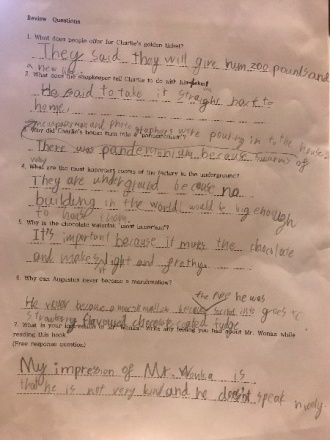 Review Questions
1. What does people offer for Charlie's golden ticket?
They said they will give him 200 pounds and
a new
2. What does the shopkeeper tell Charlie to do with his ticket?
He said to take it straight back to
home.
newspaperman and photographers were pouring in to the house
3. Why did Charlie's house turn into a "pandemonium"?
There was pandemonium because swarms of
4. What are the most important rooms of the factory is the underground?
why
They are underground because no
building in the world would be big enough
to have them.
5. Why is the chocolate waterfall "most important"?
It's important because it mixes the chocolate
and makes it light and frothy.
6. Why can Augustus never become a marshmallow?
the pipe he was
He never become a marshmallow because goes to
strawberry flavoured chocolate coated fudge
7. What is your impression of Mr. Wonka? Write any feeling you had about Mr. Wonka while
reading this book.
(Free response question)
My impression of Mr. Wonka is
that he is not very kind and he doesn't speak nicely.